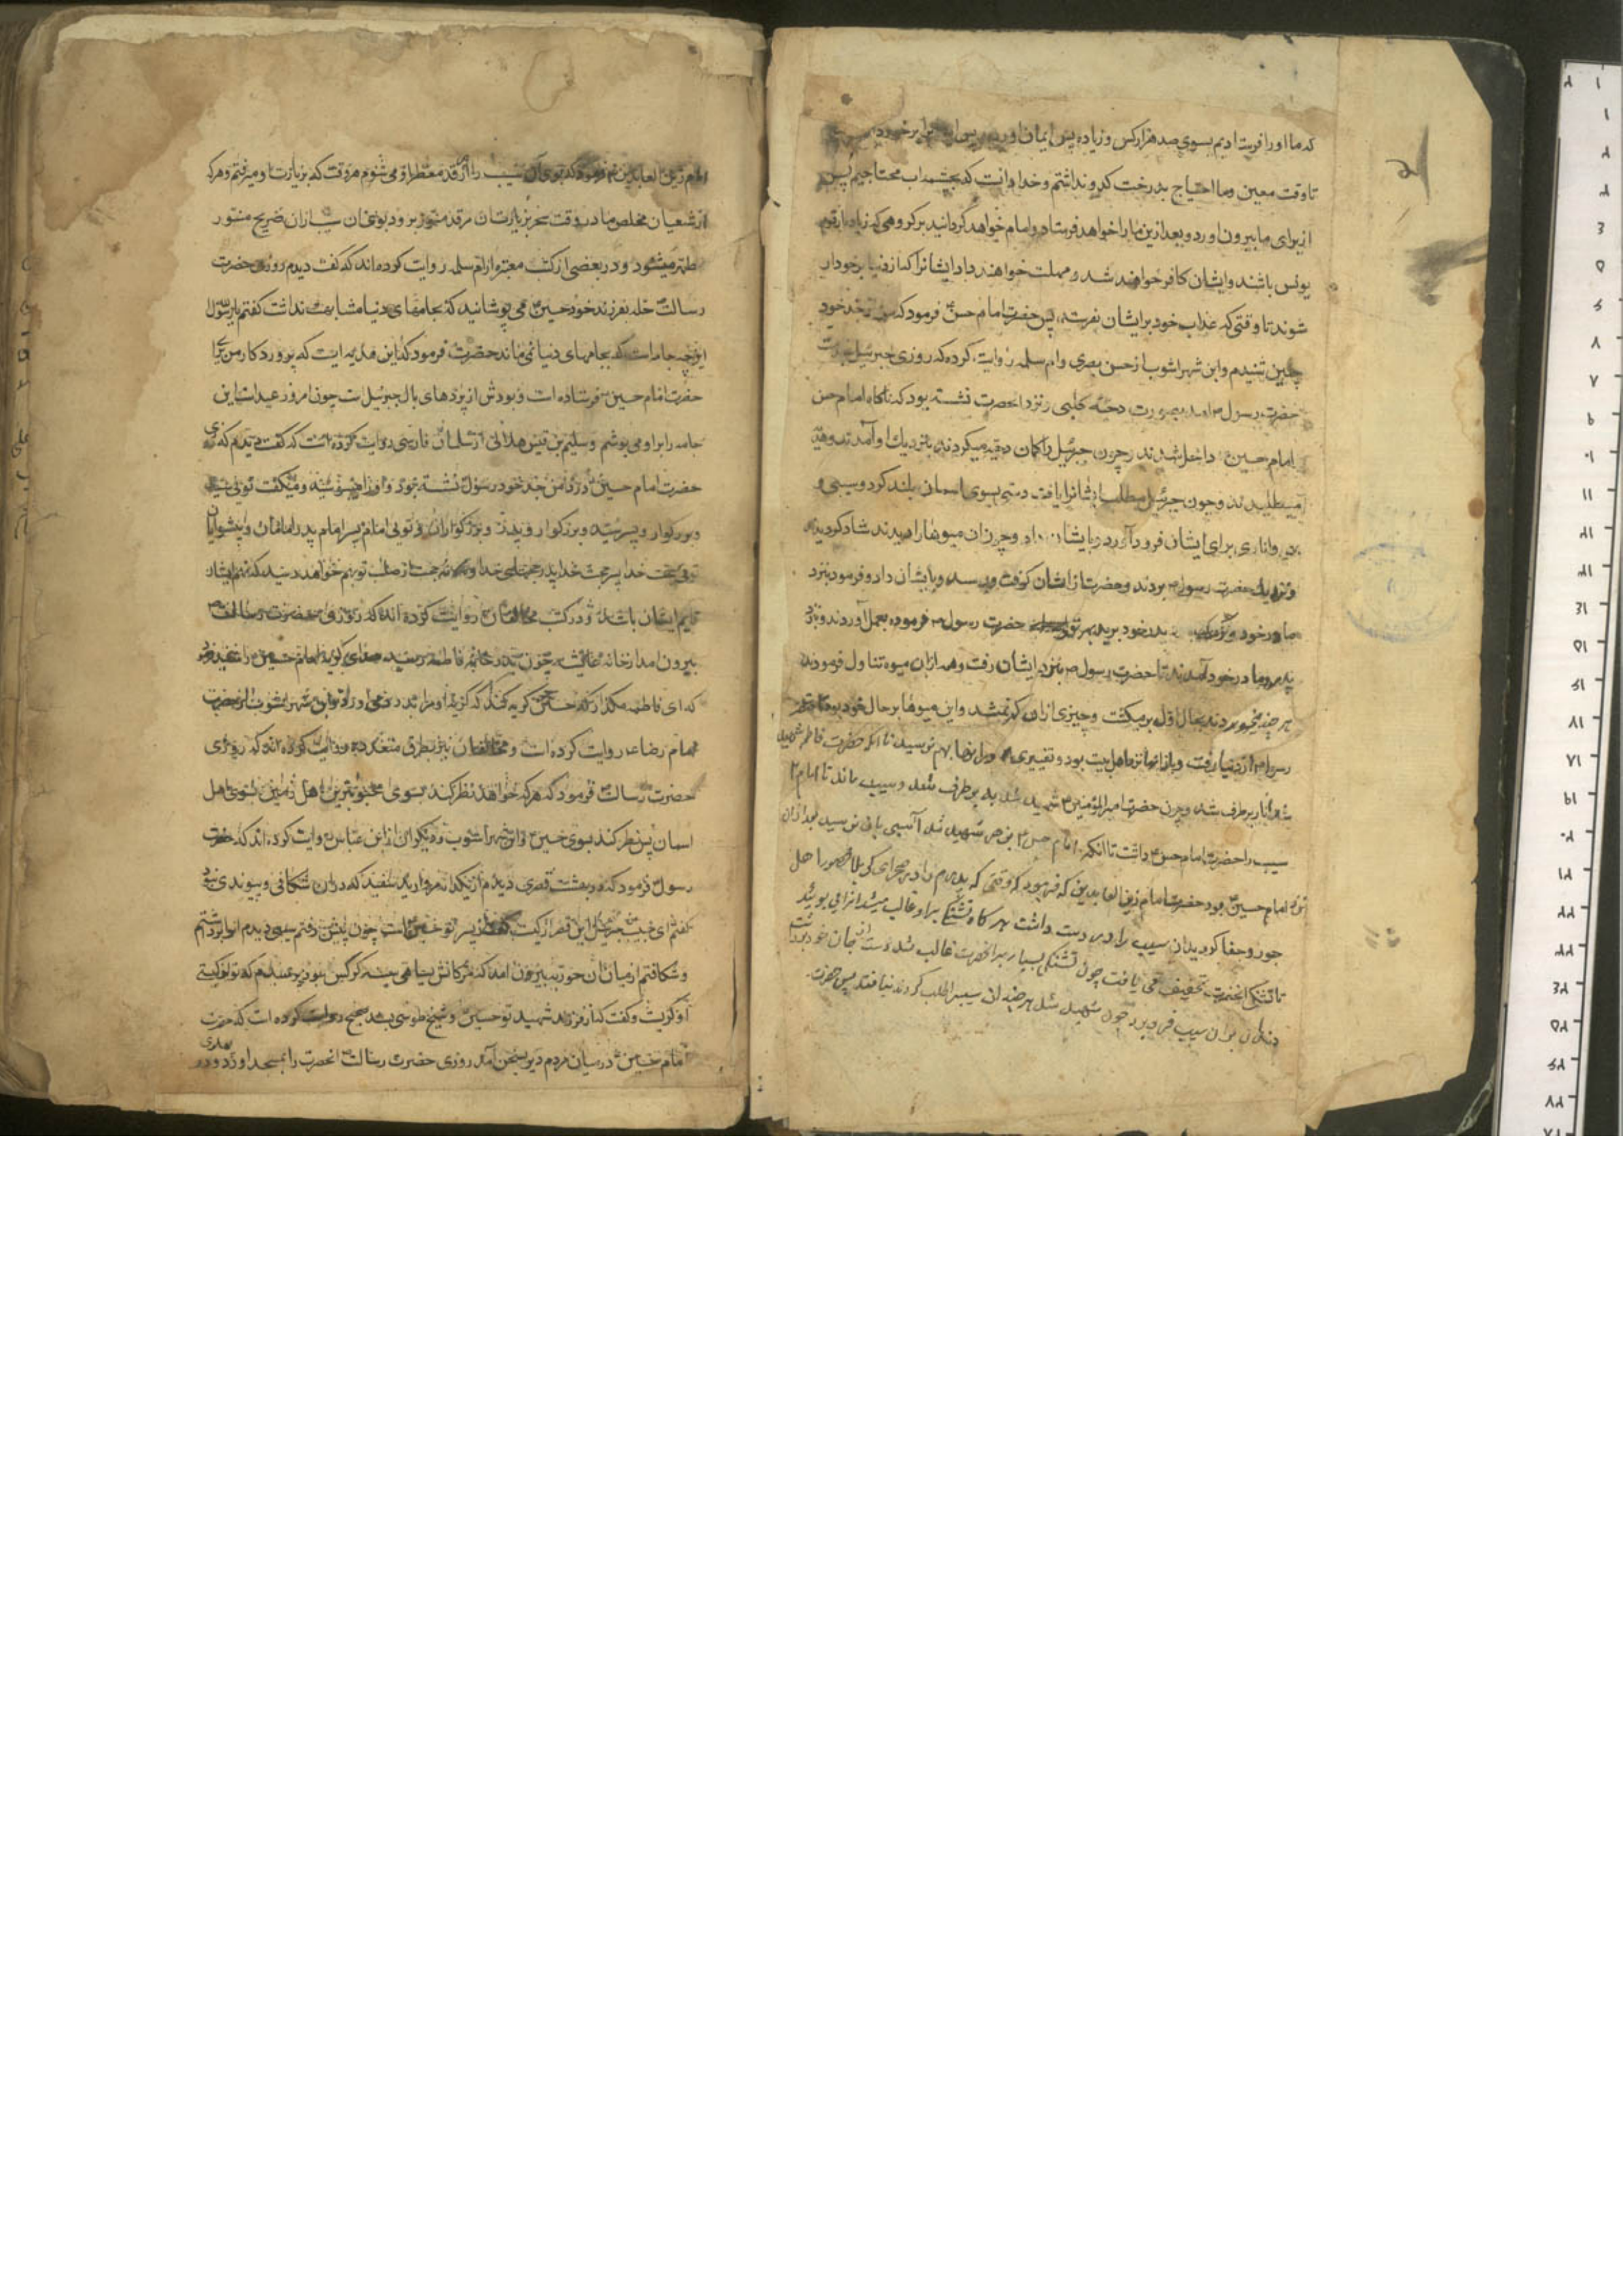 که ما او را فرستادیم بسوی صد هزار کس و زیاده پس ایمان اوردند پس ایشانرا برخوردار
تا وقت معین و ما احتیاج بدرخت کدو نداشتیم و خدا دانست که بچشمه اب محتاجیم پس
از برای ما بیرون اورد و بعد ازین ما را خواهد فرستاد و امام خواهد گردانید بر گروهی که زیاده از قوم
یونس باشند و ایشان کافر خواهند شد و مهلت خواهند داد ایشانرا که از دنیا برخوردار
شوند تا وقتی که عذاب خود بر ایشان بفرستد پس حضرت امام حسن فرمود که من از جد خود
چنین شنیدم و ابن شهر اشوب از حسن بصری و ام سلمه روایت کرده که روزی جبرئیل
حضرت رسول امد بصورت دحیه کلبی و نزد انحضرت نشسته بود که ناکاه امام حسن
امام حسین داخل شدند و چون جبرئیل را کمان دحیه میکردند بنزدیک او آمدند و هدیه
میطلبیدند و چون جبرئیل مطلب ایشانرا یافت دستی بسوی اسمان بلند کرد و سیبی و
بهی و اناری برای ایشان فرود آورد و بایشان داد و چون ان میوها را دیدند شاد کردیدند
و نزدیک حضرت رسول بردند و حضرت از ایشان کرفت و بوسید و بایشان داد و فرمود بنزد
مادر خود و پدر خود برید حضرت رسول فرموده بعمل آوردند و نزد
پدر و مادر خود آمدند تا حضرت رسول بنزد ایشان رفت و همه ازان میوه تناول فرمودند
هر چند میخوردند بحال اول برمیکشت و چیزی ازان کم نمیشد و این میوها بر حال خود بود
رسول از دنیا رفت و باز انها نزد اهل بیت بود و تغییری در انها بهم نرسید تا انکه حضرت فاطمه شهید
شد انار برطرف شد و چون حضرت امیرالمؤمنین شهید شد به برطرف شد و سیب ماند تا امام
سیب را حضرت امام حسن داشت تا انکه امام حسن بزهر شهید شد آسیبی بان نرسید بعد ازان
نزد امام حسین بود حضرت امام زین العابدین که فرمود که وقتی که پدرم را در صحرای کربلا محصور اهل
جور و جفا کردید ان سیب را در دست داشت هر کاه تشنگی بر او غالب میشد انرا می بوئید
تا تشنگی انحضرت تخفیف می یافت چون تشنگی بسیار بر انحضرت غالب شد و دست از جان خود برداشت
دندان بران سیب فرو برد چون شهید شد هر چند ان سیب را طلب کردند نیافتند پس حضرت
امام زین العابدین فرمود که بوی ان سیب را از مرقد معطر او می شنوم هر وقت که بزیارت او میرفتم و هر که
از شعیان مخلص ما در وقت سحر بزیارت ان مرقد منور برود بوی ان سیب از ان ضریح منور
میشود و در بعضی از کتب معتبره از ام سلمه روایت کرده اند که گفت دیدم روزی حضرت
رسالت حله بفرزند خود حسین می پوشانید که بجامهای دنیا مشابهت نداشت کفتم یا رسول الله
این چه جامه است که بجامهای دنیا نمی ماند حضرت فرمود که این هدیه ایست که پروردکار من برای
حضرت امام حسین فرستاده است و پودش از پرهای بال جبرئیل است چون امروز عید است این
جامه را براو می پوشم و سلیم بن قیس هلالی از سلمان فارسی روایت کرده است که گفت دیدم که روزی
حضرت امام حسین در دامن جد خود رسول نشسته بود و او را میبوسید و میکفت توئی سید
و بزرکوار و پسر سید و بزرکوار و پدر بزرکواران و توئی امام پسر امام پدر امامان و پیشوایان
توئی حجت خدا پسر حجت خدا پدر حجتهای خدا و نه حجت از صلب تو بهم خواهند رسید که نهم ایشان
قایم ایشان باشد و در کتب مخالفان روایت کرده اند که روزی حضرت رسالت
بیرون امد از خانه عایشه چون بدر خانه فاطمه رسید صدای گریه امام حسین را شنید فرمود
که ای فاطمه مکذار که حسین گریه کند که گریه او مرا بدرد می اورد و ابن شهر اشوب از حضرت
امام رضا روایت کرده است و مخالفان نیز بطرق متعدده روایت کرده اند که روزی
حضرت رسالت فرمود که هر که خواهد نظر کند بسوی محبوبترین اهل زمین بسوی اهل
اسمان پس نظر کند بسوی حسین و ابن شهر اشوب و دیکران از ابن عباس روایت کرده اند که حضرت
رسول فرمود که در بهشت قصری دیدم از یکدانه مروارید سفید که دران شکافی و پیوندی نبود
کفتم ای حبیب جبرئیل این قصر از کیست گفت از پسر تو حسین است چون پیش رفتم سیبی دیدم انرا برداشتم
و شکافتم از میان ان حوریه بیرون امد که مژکانش بسیاهی پر کرکس بود پرسیدم که تو از کیستی
او گریست و گفت که از فرزند شهید تو حسین و شیخ طوسی بسند صحیح روایت کرده است که حضرت
امام حسین در میان مردم دیر بسخن آمد روزی حضرت رسالت انحضرت را بمسجد اورد و در